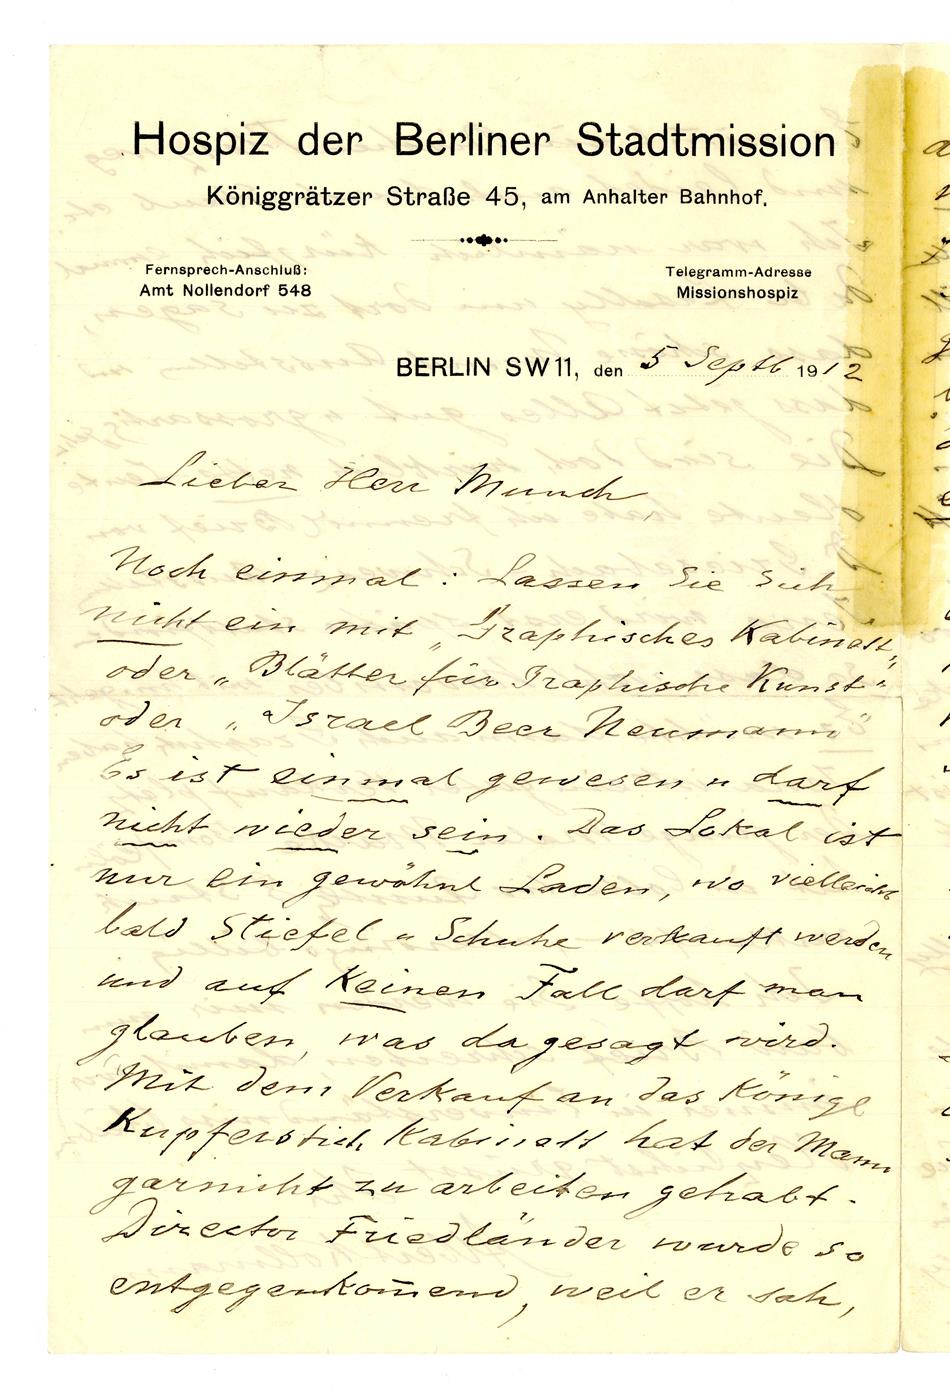 Hospiz der Berliner Stadtmission
Königgrätzer Straße 45, am Anhalter Bahnhof.
Fernsprech-Anschluß:
Amt Nollendorf 548
Telegramm-Adresse
Missionshospiz
BERLIN SW 11, den 5 Septb 1912
Lieber Herr Munch
Noch einmal: Lassen Sie sich
nicht ein mit „Graphisches Kabinett"
oder „Blätter für Graphische Kunst"
oder „Israel Beer Neumann"
Es ist einmal gewesen u darf
nicht wieder sein. Das Lokal ist
nur ein gewöhnl Laden, wo vielleicht
bald Stiefel u Schuhe verkauft werden
und auf Keinen Fall darf man
glauben, was da gesagt wird.
Mit dem Verkauf an das Königl
Kupferstich Kabinett hat der Mann
garnicht zu arbeiten gehabt.
Director Friedländer wurde so
entgegenkom̄end, weil er sah,